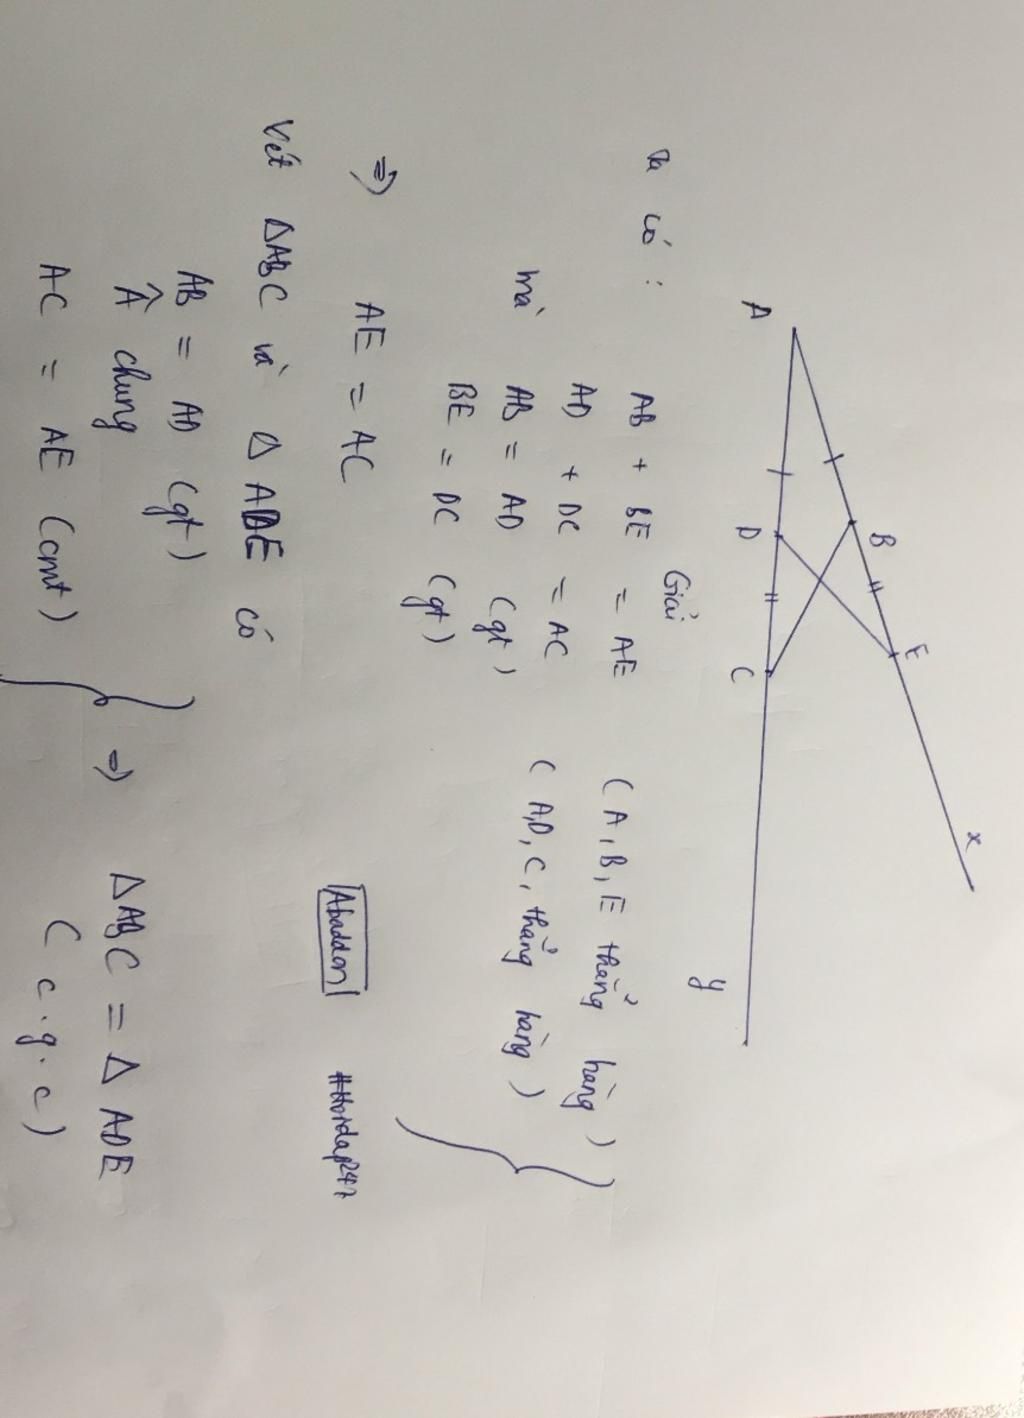 x
E
B
A
D
C
y
Giải
Ta có : AB + BE = AE (A, B, E thẳng hàng)
AD + DC = AC (A,D, C, thẳng hàng)
mà AB = AD (gt)
BE = DC (gt)
=> AE = AC
Abaddon #Hoidap247
Xét ΔABC và Δ ADE có
AB = AD (gt)
Â chung => ΔABC = Δ ADE
AC = AE (cmt) (c.g.c)